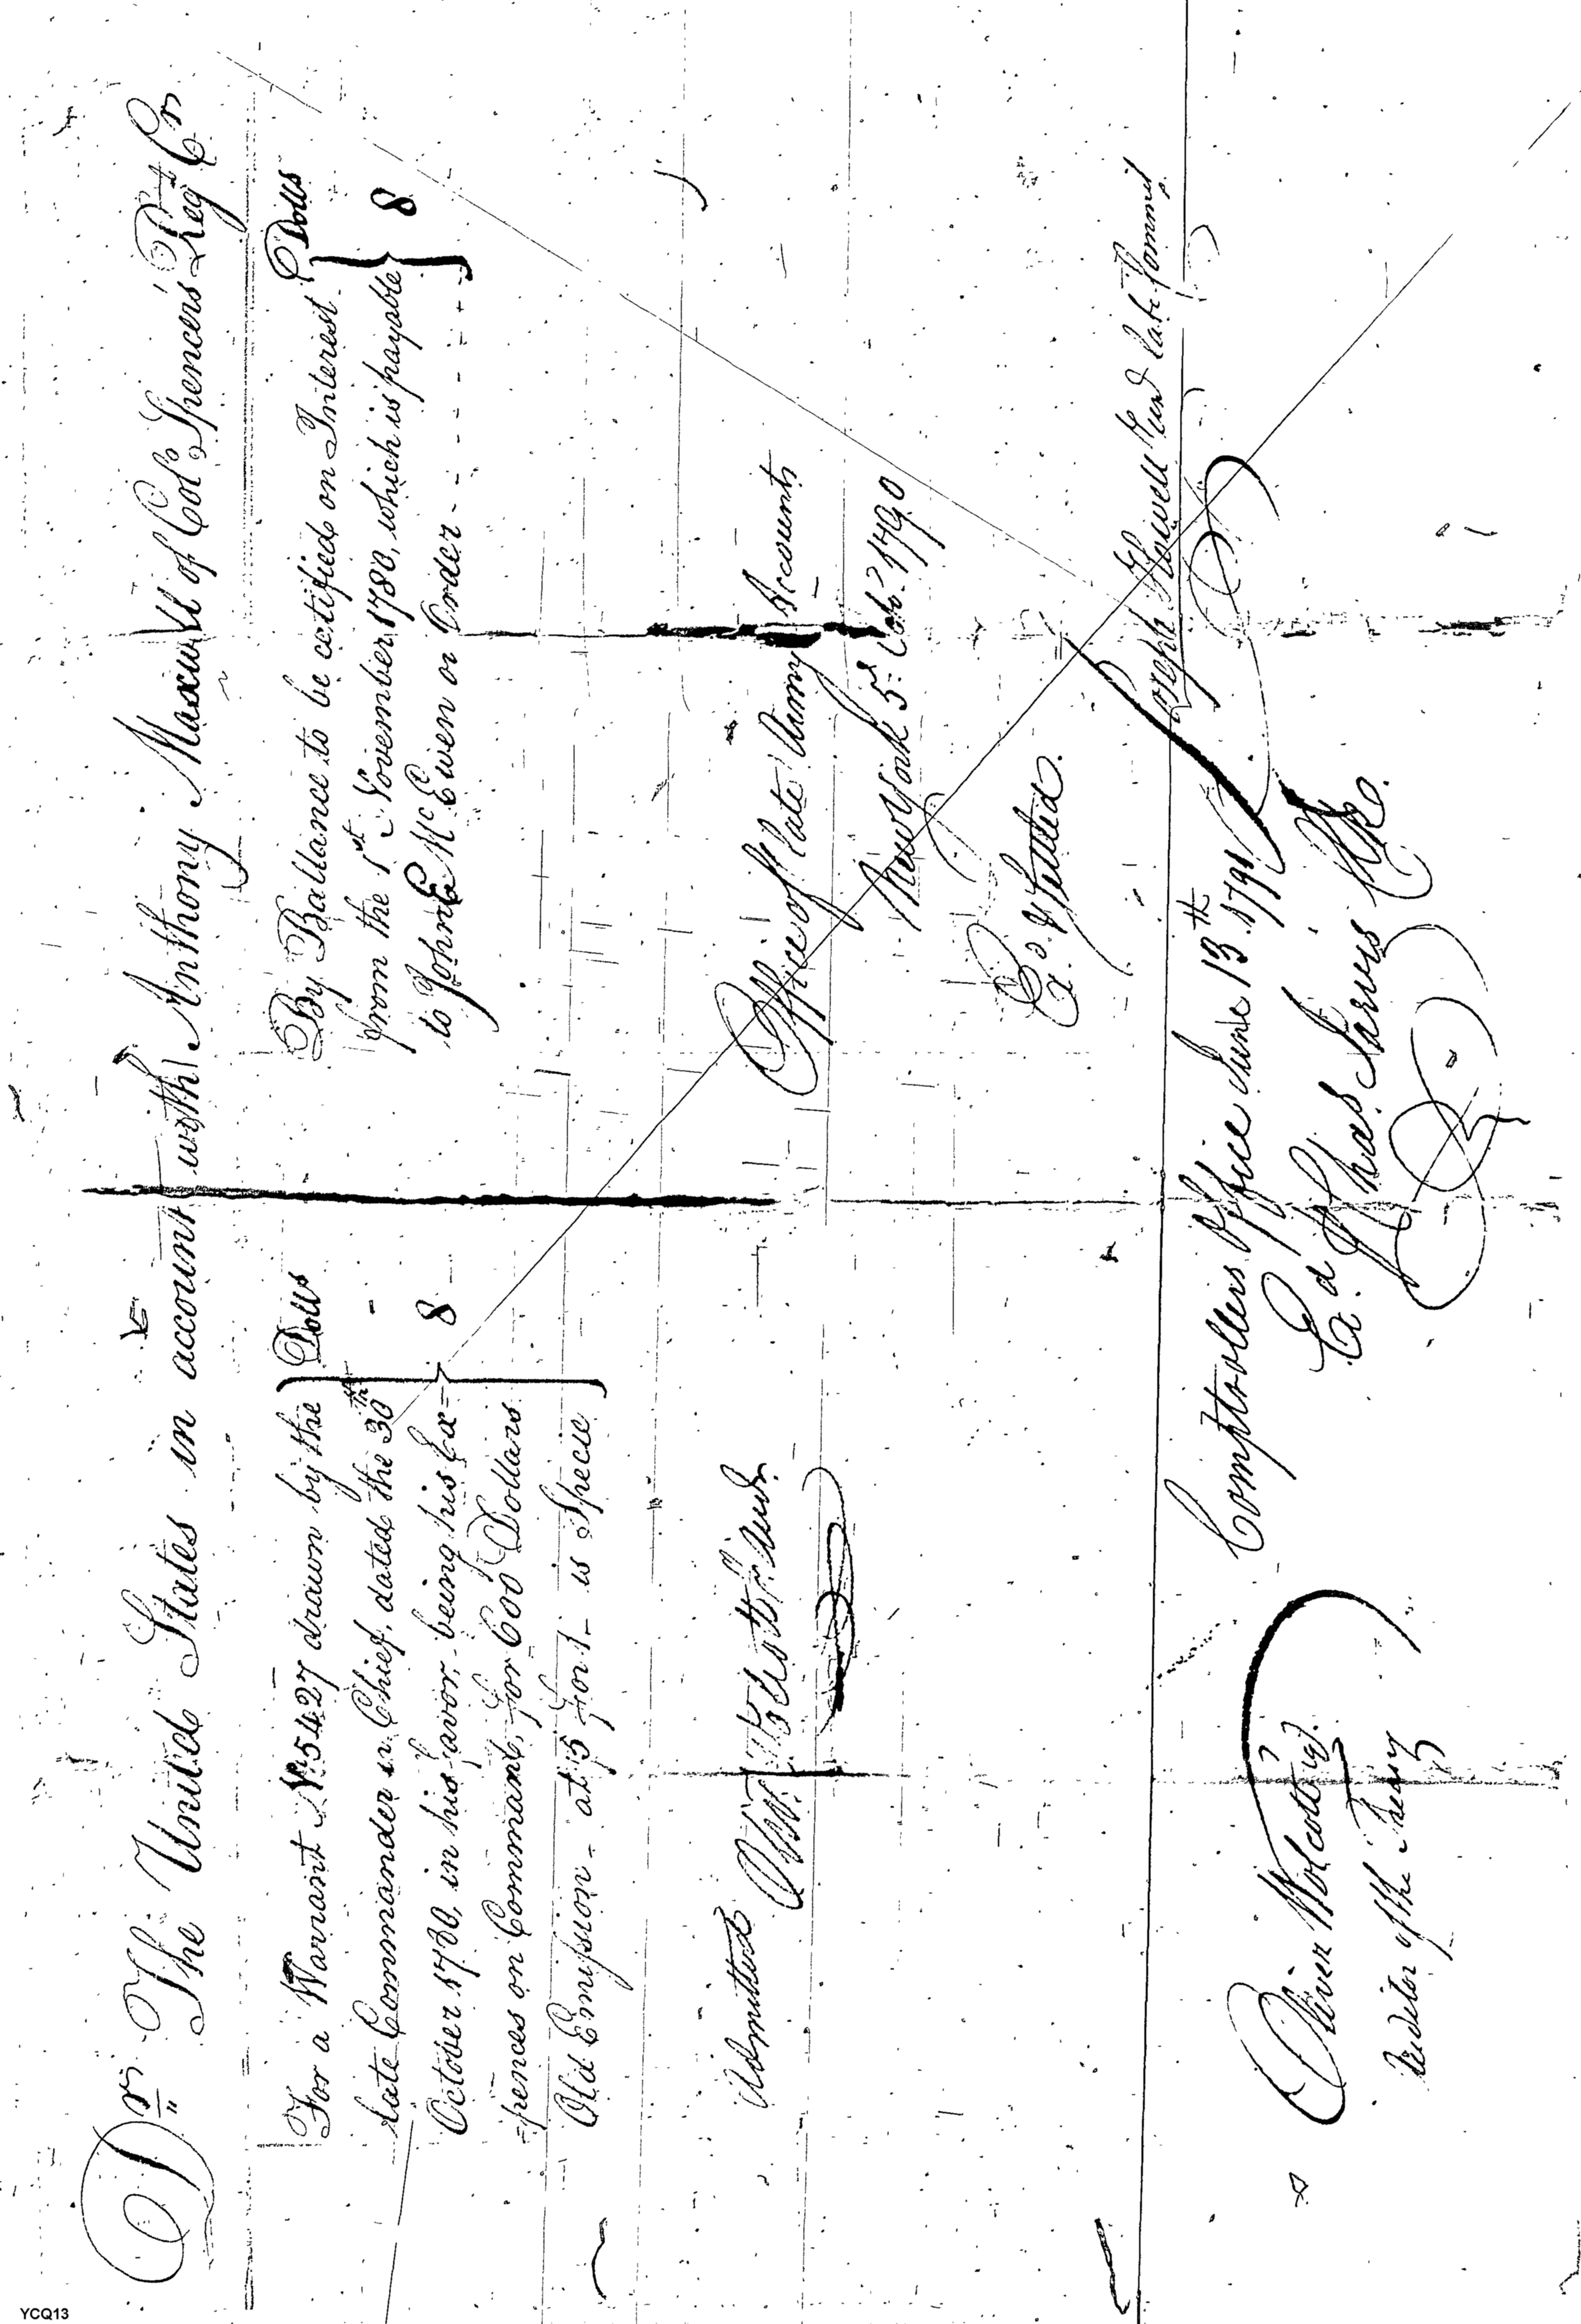 Dr The United States in account with Anthony Maxwell of Colo Spencers Regt Cr
For a Warrant No 5427 drawn by the
late Commander in Chief, dated the 30th
October 1780, in his favor, being his Ex=
=pences on Command, for 600 Dollars
Old Emission - at 75 for 1 - is Specie
Dolls
-
8
By Ballance to be certified on Interest
from the 1st November 1780, which is payable
to John McEwen or Order - - - - - -
Dolls
8
Admitted
Office of late Army Accounts
New York 5 Octr 1790
Exd & Settled.
Joseph Howell Junr late Commr
Comptrollers Office June 13th 1791
Exd Chas Jarvis Clk.
Oliver Wolcott Jr.
Auditor of the Treasy
YCQ13